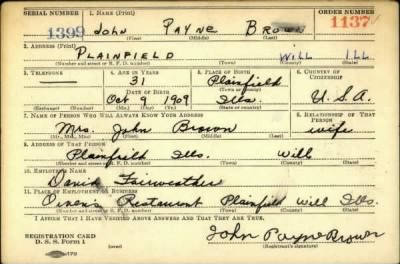 SERIAL NUMBER 1. NAME (Print) ORDER NUMBER
1399 John Payne Brown 1137
(First) (Middle) (Last)
2. ADDRESS (Print)
PLAINFIELD WILL ILL
(Number and street or R. F. D. number) (Town) (County) (State)
3. TELEPHONE 4. AGE IN YEARS 5. PLACE OF BIRTH 6. COUNTRY OF CITIZENSHIP
31 Plainfield
DATE OF BIRTH (Town or county)
Oct 9 1909 Ills. U.S.A.
(Exchange) (Number) (Mo.) (Day) (Yr.) (State or country)
7. NAME OF PERSON WHO WILL ALWAYS KNOW YOUR ADDRESS 8. RELATIONSHIP OF THAT PERSON
Mrs. John Brown wife
(Mr., Mrs., Miss) (First) (Middle) (Last)
9. ADDRESS OF THAT PERSON
Plainfield Ills. Will
(Number and street or R. F. D. number) (Town) (County) (State)
10. EMPLOYER'S NAME
David Fairweather
11. PLACE OF EMPLOYMENT OR BUSINESS
Restaurant Plainfield Will Ills.
(Number and street or R. F. D. number) (Town) (County) (State)
I AFFIRM THAT I HAVE VERIFIED ABOVE ANSWERS AND THAT THEY ARE TRUE.
REGISTRATION CARD John Payne Brown
D. S. S. Form 1 (over) (Registrant's signature)